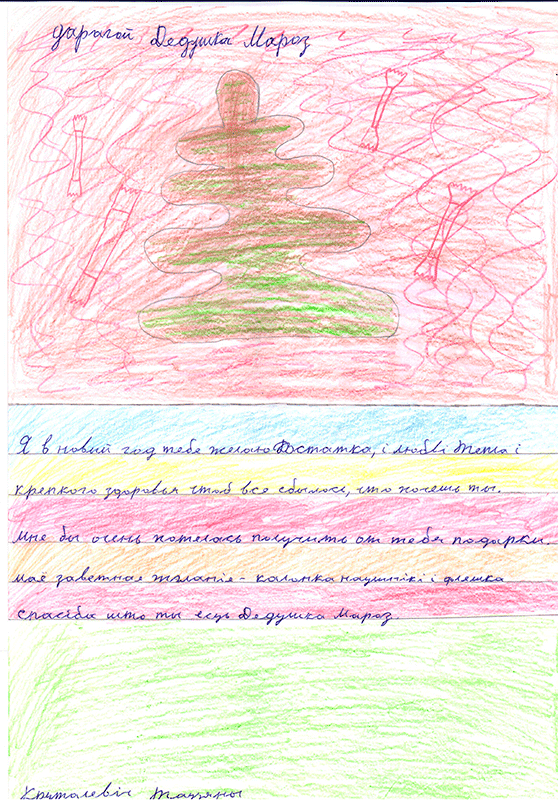 дарагой Дедушка Мароз
Я в новый год тебе желаю Достатка, і любві Тепла і
крепкого здоровья штоб все сбылось, что хочешь ты.
мне бы очень хотелась получить от тебя подарки.
маё заветное жэланіе - калонка наушнікі і флешка
спасіба што ты есць Дедушка Мароз.